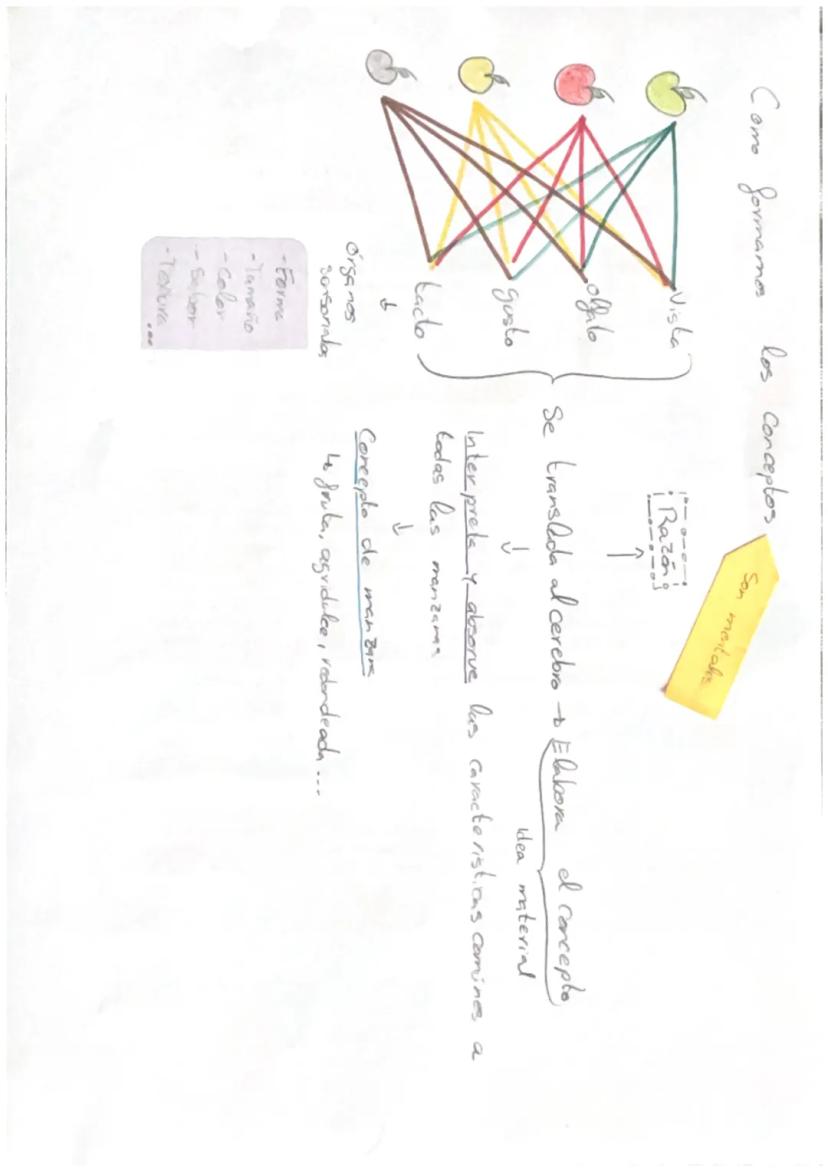 Como formamos los conceptos
Son mentales
Razón
↑
Vista
olfato
gusto
tacto
Se translada al cerebro → Elabora el concepto
idea material
↓
Interpreta y absorve las caracteristicas comunes a
todas las manzanas
↓
Concepto de manzana
↳ fruta, agridulce, redondeada...
órganos
sensoriales
↓
- Forma
- Tamaño
- Color
- Sabor
- Textura
...